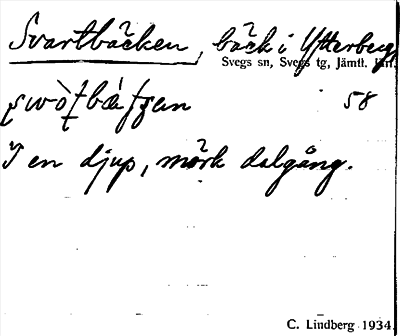 Svartbäcken, bäck i Ytterberg,
Svegs sn, Svegs tg, Jämtl. län.
58
I en djup, mörk dalgång.
C. Lindberg 1934